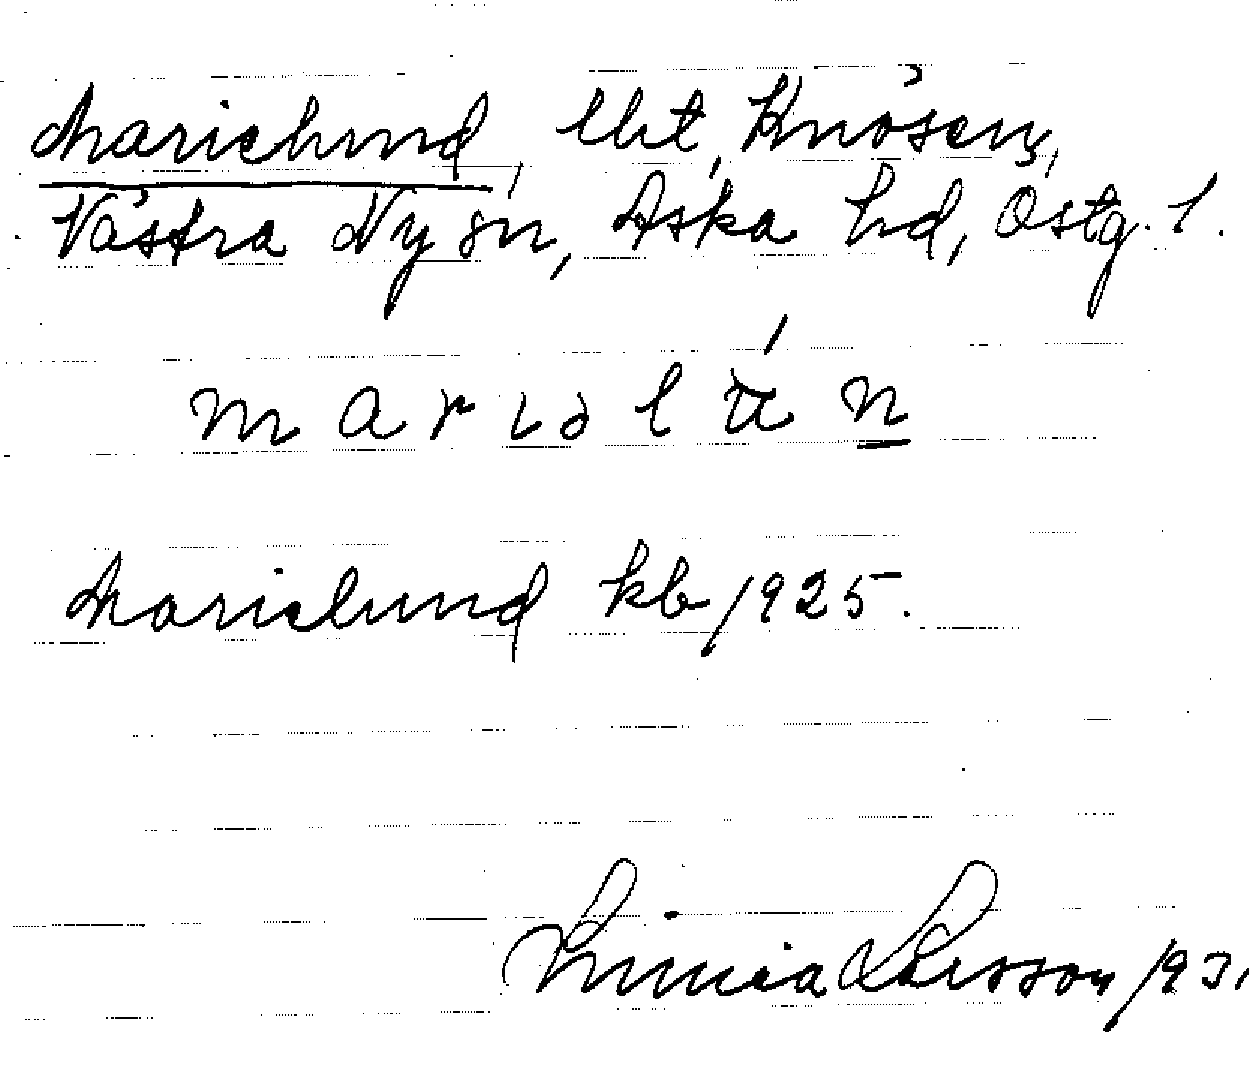 Marielund, lht, Knösen,
Västra Ny sn, Aska hd, Östg. l.
Marielund kb 1925.
Linnea Larsson 1931